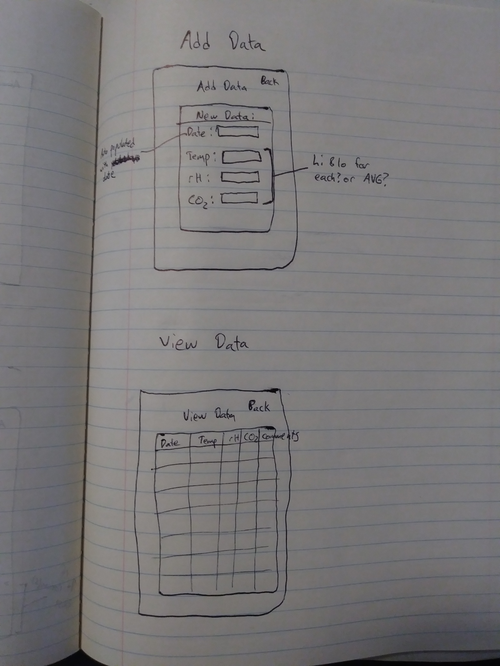 Add Data
Add Data Back
New Data:
Date:
date
Temp:
rH:
CO2:
Hi & lo for
each? or AVG?
View Data
View Data Back
Date Temp rH CO2 Comments